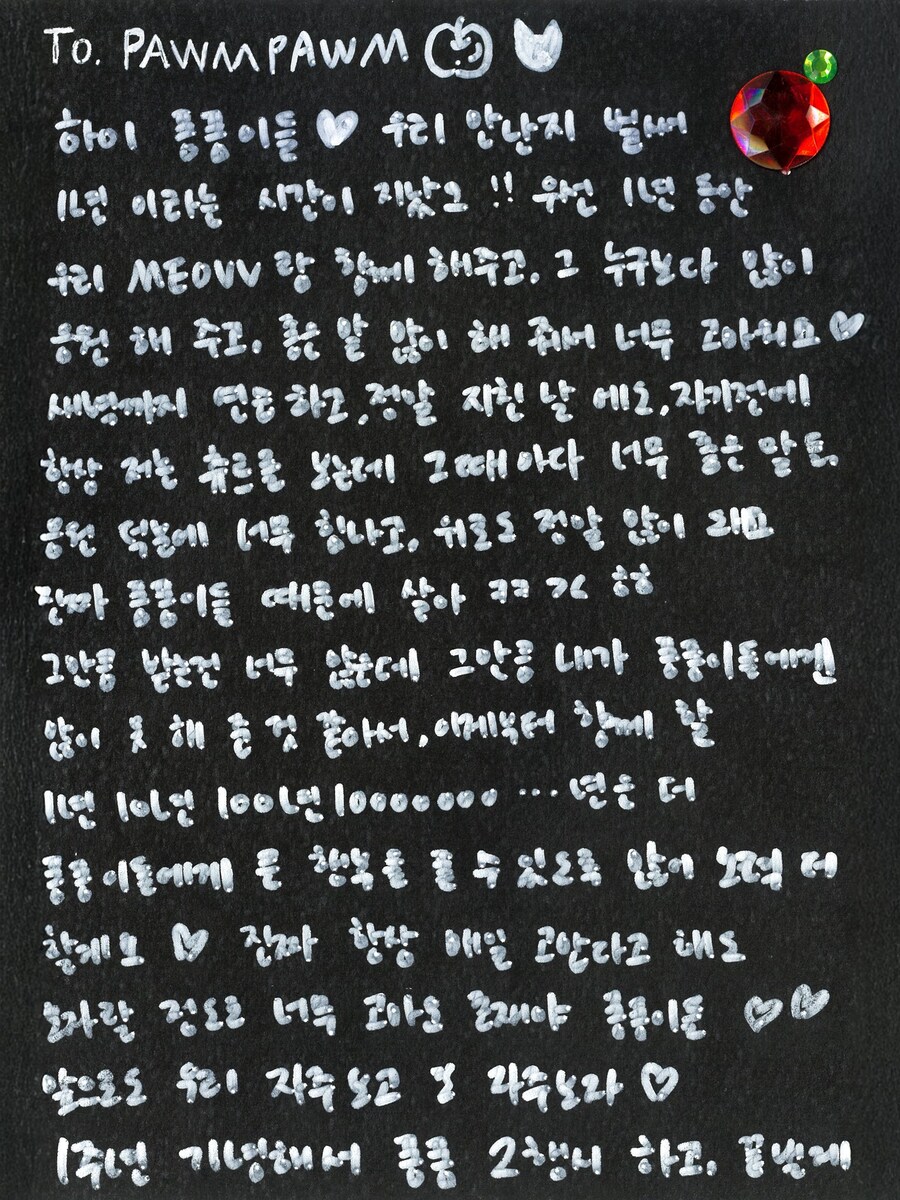 To. PAWMPAWM
하이 퐁퐁이들 ♡ 우리 만난지 벌써
1년 이라는 시간이 지났고 !! 우선 1년 동안
우리 MEOVV 랑 함께 해주고, 그 누구보다 많이
응원 해 주고, 좋은 말 많이 해 줘서 너무 고마워요 ♡
새벽까지 연습하고, 정말 지친 날 에도, 자기전에
항상 저는 츄르를 보는데 그때마다 너무 좋은 말 도,
응원 덕분에 너무 힘나고, 위로도 정말 많이 돼요
진짜 퐁퐁이들 때문에 살아 ㅋㅋ ㅎㅎ
그만큼 받는건 너무 많은데 그만큼 내가 퐁퐁이들에겐
많이 못 해 준 것 같아서, 이제부터 함께 할
1년 10년 100년 10000000 ... 년은 더
퐁퐁이들에게 큰 행복을 줄 수 있도록 많이 노력 더
할게요 ♡ 진짜 항상 매일 고맙다고 해도
모자랄 정도로 너무 고마운 존재야 퐁퐁이들 ♡♡
앞으로도 우리 자주 보고 또 자주보자 ♡
1주년 기념해서 퐁퐁 2행시 하고, 끝낼게